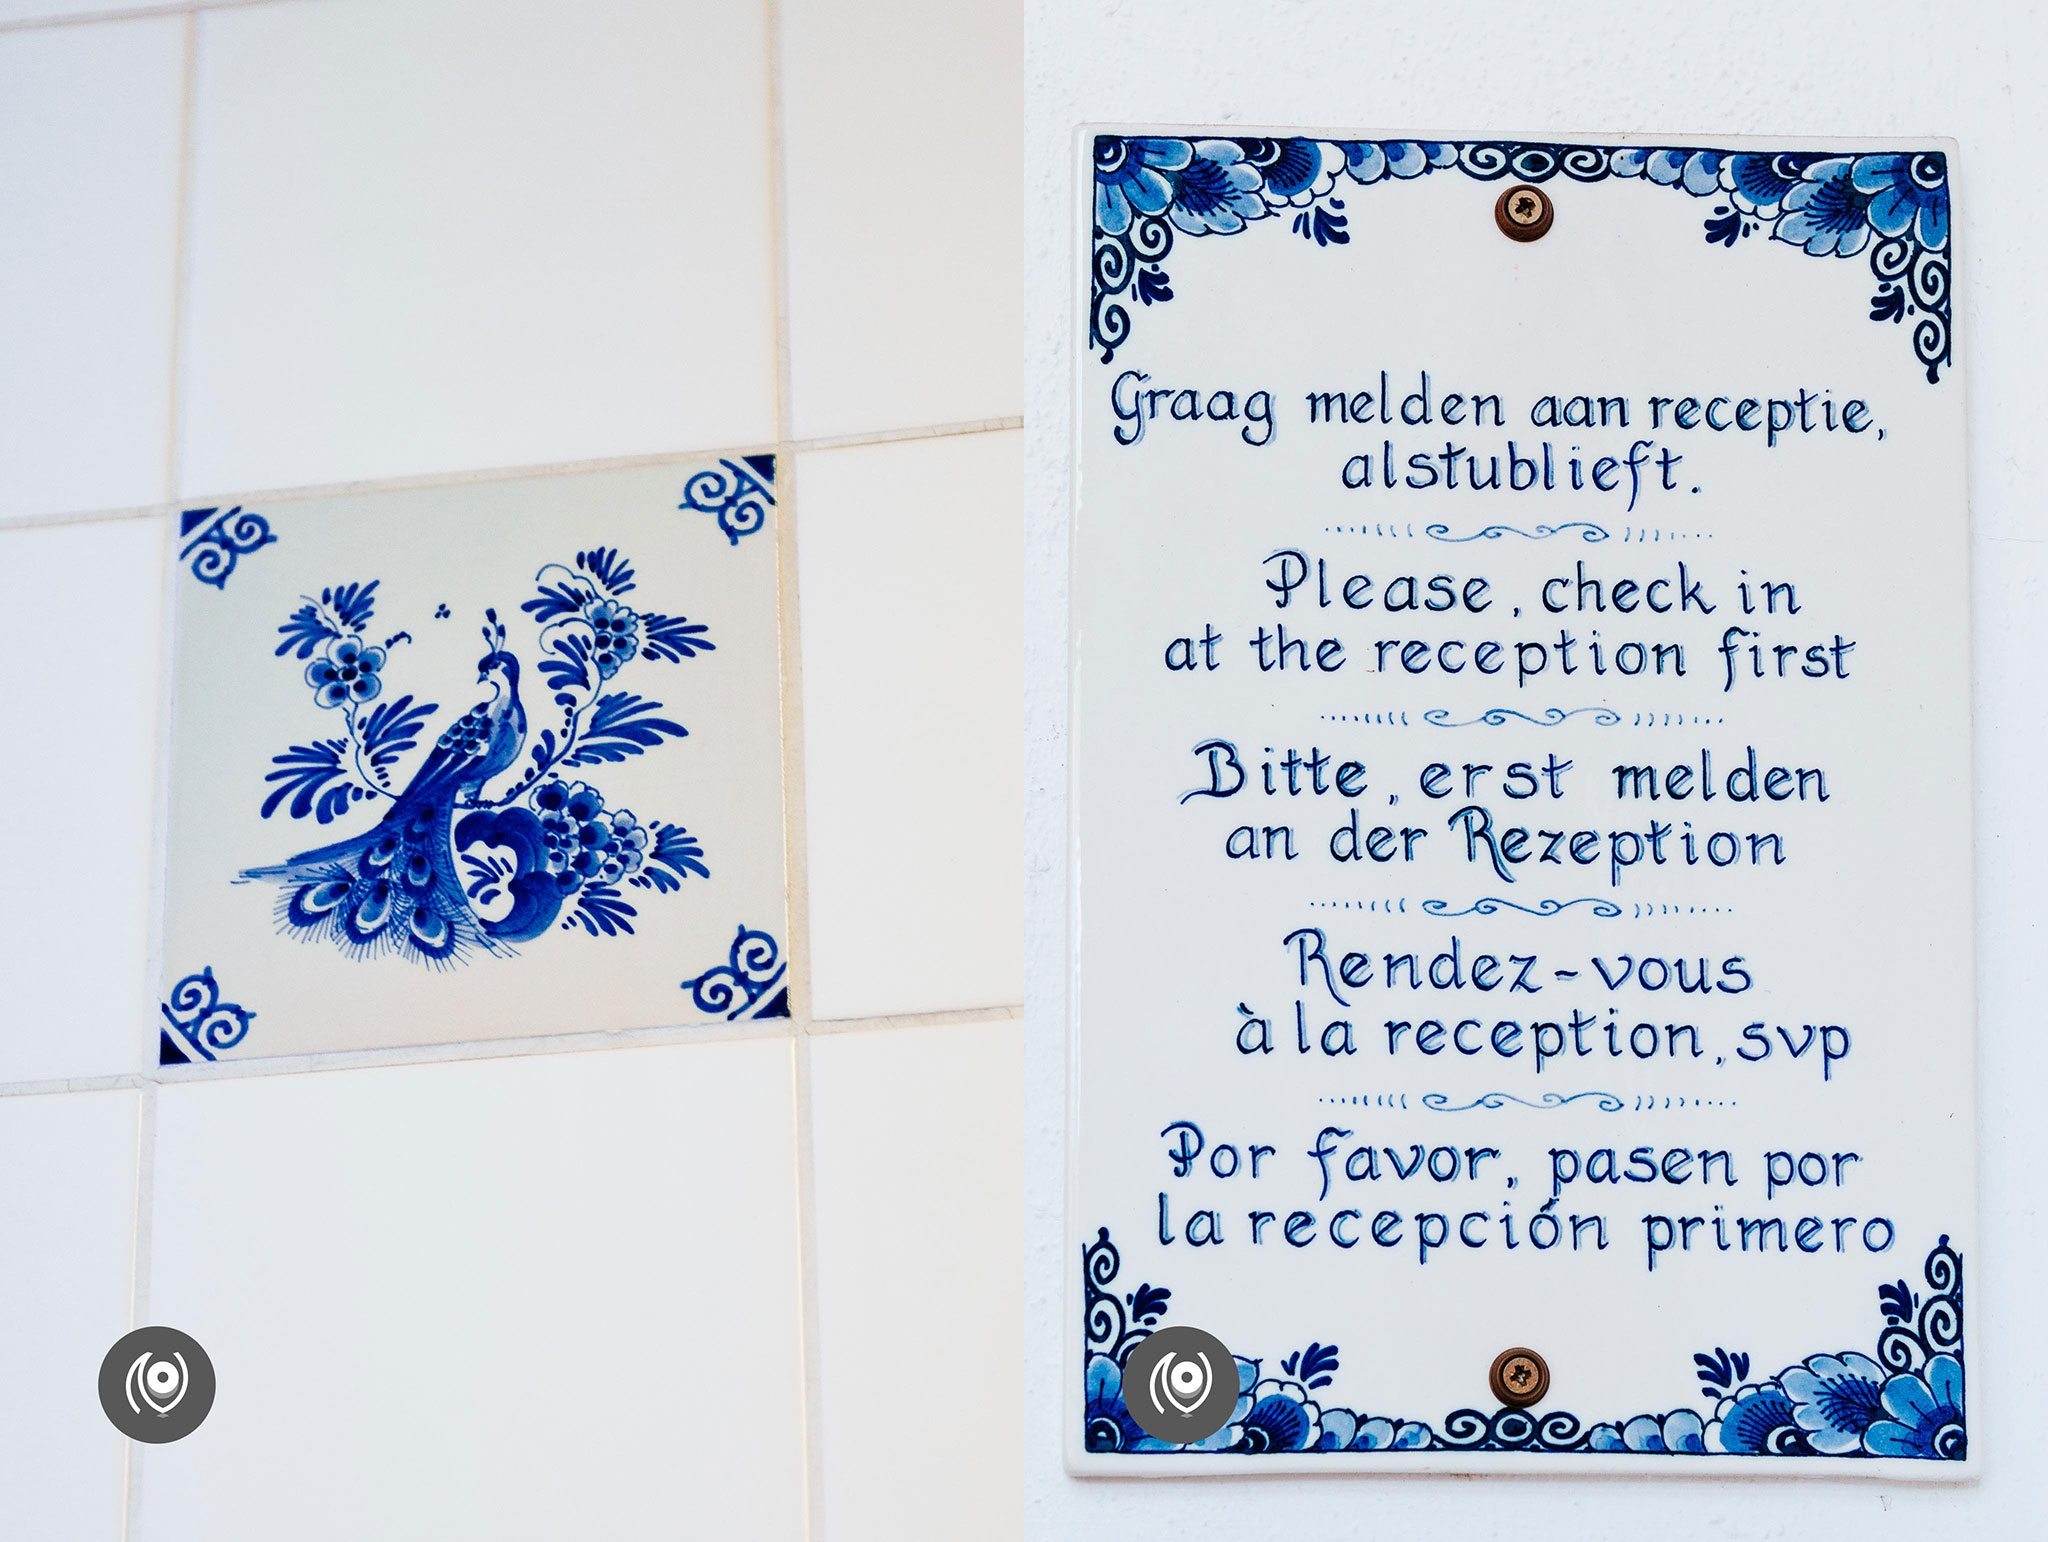 Graag melden aan receptie,
alstublieft.
Please, check in
at the reception first
Bitte, erst melden
an der Rezeption
Rendez-vous
à la reception, svp
Por favor, pasen por
la recepción primero